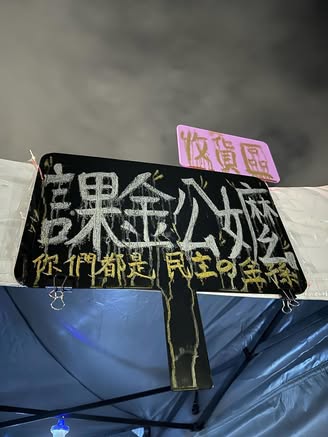 收貨區
課金公嬤
你們都是民主の金孫